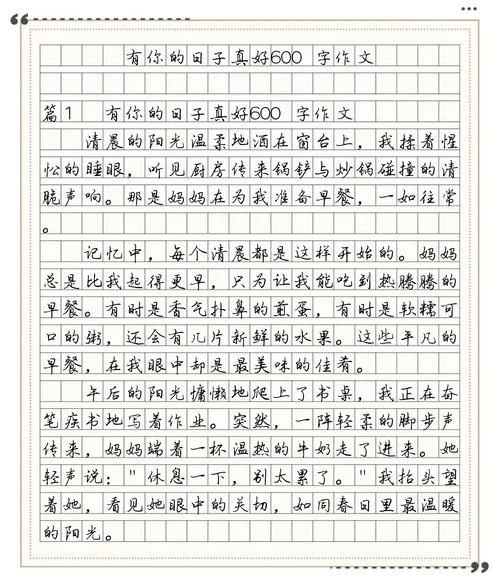 有你的日子真好600 字作文
篇1 有你的日子真好600 字作文
清晨的阳光温柔地洒在窗台上，我揉着惺
忪的睡眼，听见厨房传来锅铲与炒锅碰撞的清
脆声响。那是妈妈在为我准备早餐，一如往常
。
记忆中，每个清晨都是这样开始的。妈妈
总是比我起得更早，只为让我能吃到热腾腾的
早餐。有时是香气扑鼻的煎蛋，有时是软糯可
口的粥，还会有几片新鲜的水果。这些平凡的
早餐，在我眼中却是最美味的佳肴。
午后的阳光慵懒地爬上了书桌，我正在奋
笔疾书地写着作业。突然，一阵轻柔的脚步声
传来，妈妈端着一杯温热的牛奶走了进来。她
轻声说："休息一下，别太累了。"我抬头望
着她，看见她眼中的关切，如同春日里最温暖
的阳光。